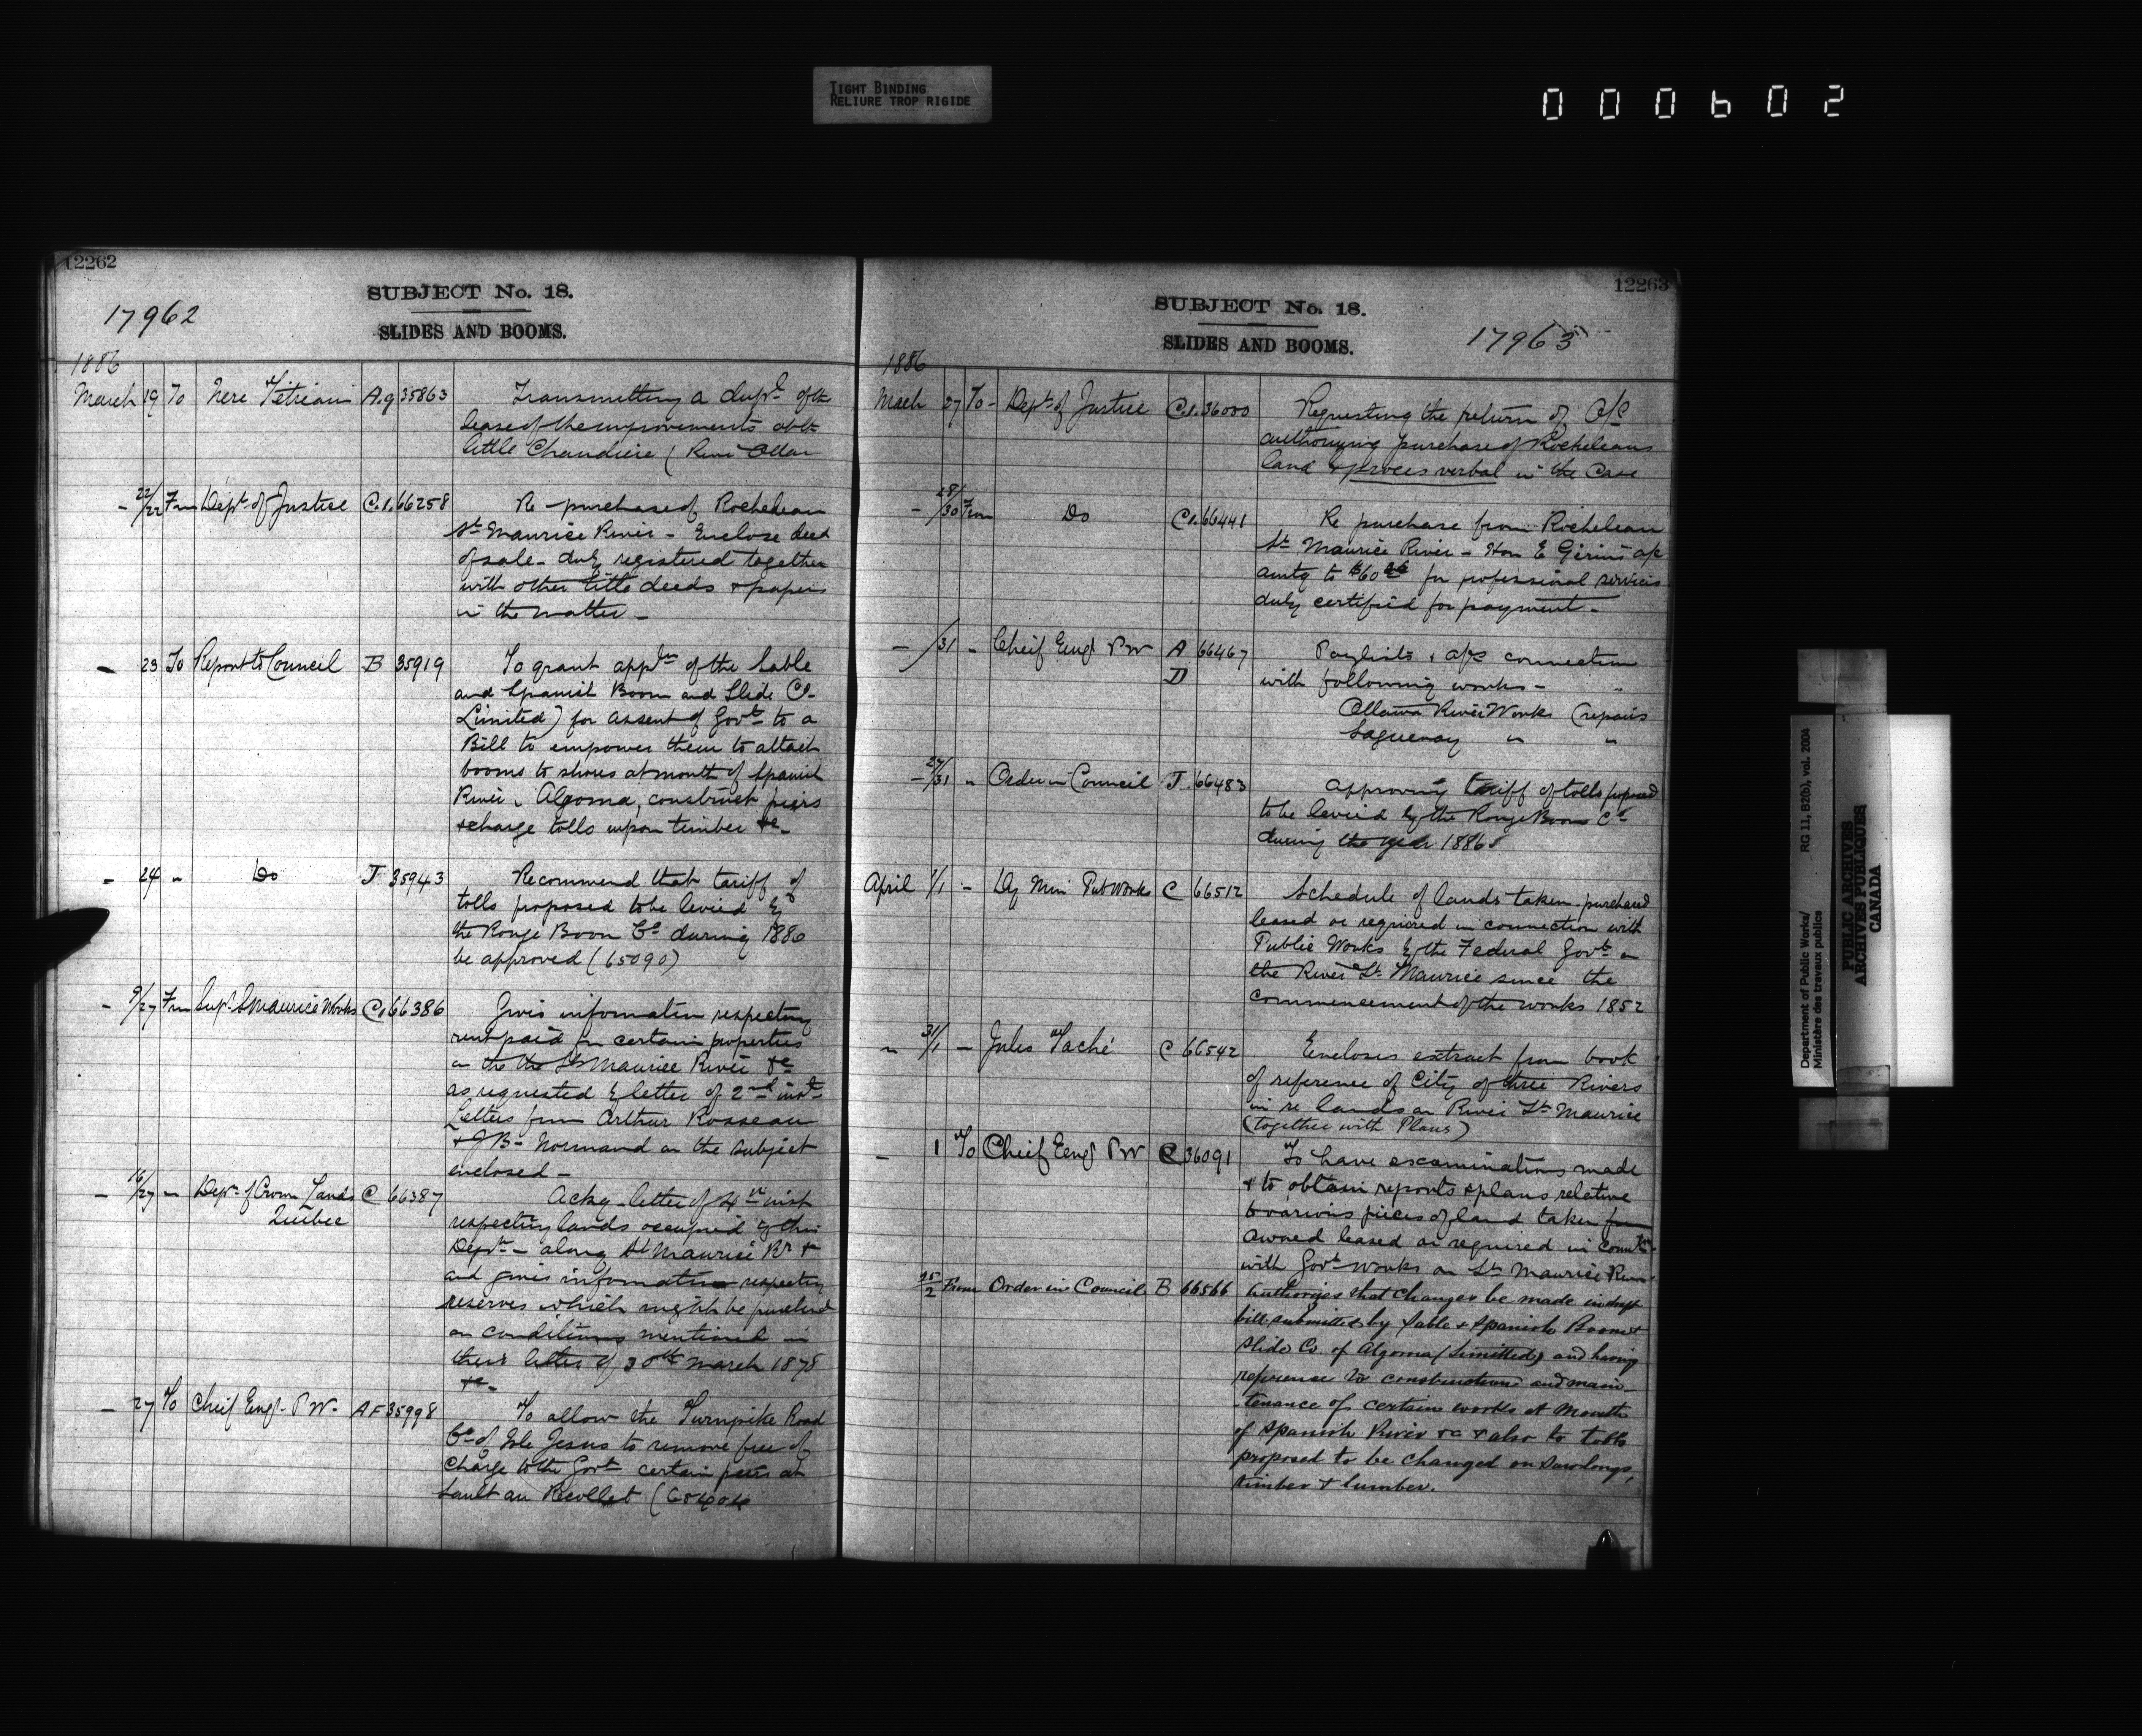 TIGHT BINDING
RELIURE TROP RIGIDE
000602
12262
SUBJECT No. 18.
17962
SLIDES AND BOOMS.
1886
March 19 To Nere Tetreau A.g 35863 Transmitting a dupl of the
lease of the improvements at the
little Chaudiere (River Ottaw
- 22/22 Fm Dept of Justice C.1. 66258 Re purchase of Rocheleau
St Maurice River - Enclose deed
of sale - duly registered together
with other title deeds & papers
in the matter -
- 23 To Report to Council B 35919 To grant appln of the Sable
and Spanish Boom and Slide Co
Limited) for assent of Govt to a
Bill to empower them to attach
booms to shores at mouth of Spanish
River, Algoma, construct piers
& charge tolls upon timber &c -
- 24 " Do J 35943 Recommend that tariff of
tolls proposed to be levied by
the Rouge Boom Co during 1886
be approved (65090)
- 9/27 Fm Supt St Maurice Works C. 66386 Gives information respecting
rent paid for certain properties
on the the St Maurice River &c
as requested by letter of 2nd inst
Letters from Arthur Rosseau
& J B - Normand on the subject
enclosed -
- 16/27 " Dept of Crown Lands C 66387 Ackg letter of 4th inst
Quebec respecting lands occupied by this
Dept - along St Maurice Rr &
and gives information respecting
reserves which might be purchased
on conditions mentioned in
their letter of 30th March 1878
&c -
- 27 To Cheif Engr P W - A F 35998 To allow the Turnpike Road
Co of Isle Jesus to remove free of
Charge to the Govt certain piers at
Sault au Recollet (65404
12263
SUBJECT No. 18.
17963
SLIDES AND BOOMS.
1886
March 27 To - Dept of Justice C.1. 36000 Requesting the return of O/C
authorizing purchase of Rocheleaus
land & proces verbal in the Case
- 28/30 From Do C1. 66441 Re purchase from Rocheleau
St Maurice River - Hon E Gerin's a/c
amtg to $60 for professional services
duly certified for payment -
- /31 " Cheif Engr P W A 66467 Paylists & a/cs connection
D with following works - "
Ottawa River Works (repairs
Saguenay " "
- 24/31 " Order in Council J. 66483 Approving tariff of tolls proposed
to be levied by the Rouge Boom Co
during the year 1886
April 1/1 - Dy Min Pub Works C 66512 Schedule of lands taken purchased
leased or required in connection with
Public Works by the Federal Govt on
the River St Maurice since the
commencement of the works 1852
" 31/1 - Jules Taché C 66542 Encloses extract from book
of reference of City of three Rivers
in re lands on River St Maurice
(together with Plans)
- 1 To Cheif Eengr P W C 36091 To have examinations made
& to obtain reports & plans relative
to various pieces of land taken from
owned leased or required in conntn
with Govt works on St Maurice River
25/2 From Order in Council B 66566 Authorizes that changes be made in draft
bill submitted by Sable & Spanish Boom &
Slide Co. of Algoma (Limitted) and having
reference to construction and main-
tenance of certain works at Mouth
of Spanish River &c & also to tolls
proposed to be changed on Sawlongs,
timber & lumber.
Department of Public Works/ RG 11, B2(b), vol. 2004
Ministère des travaux publics
PUBLIC ARCHIVES
ARCHIVES PUBLIQUES
CANADA